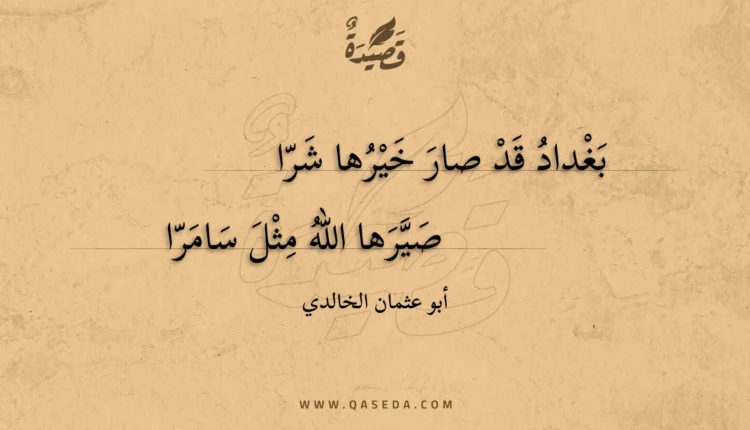 قَصِيْدَةٌ
بَغْدادُ قَدْ صارَ خَيْرُها شَرّا
صَيَّرَها اللهُ مِثْلَ سَامَرّا
أبو عثمان الخالدي
WWW.QASEDA.COM